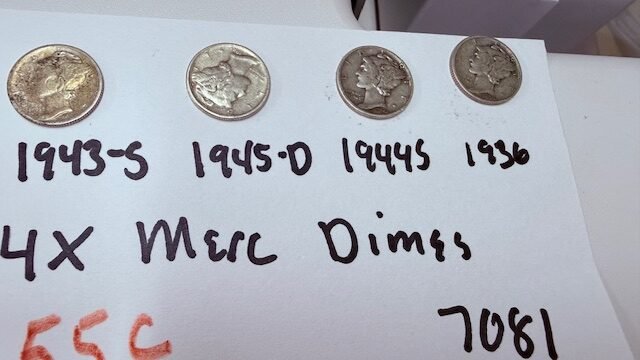 1943-S 1945-D 1944S 1936
4X Merc Dimes
55C 7081